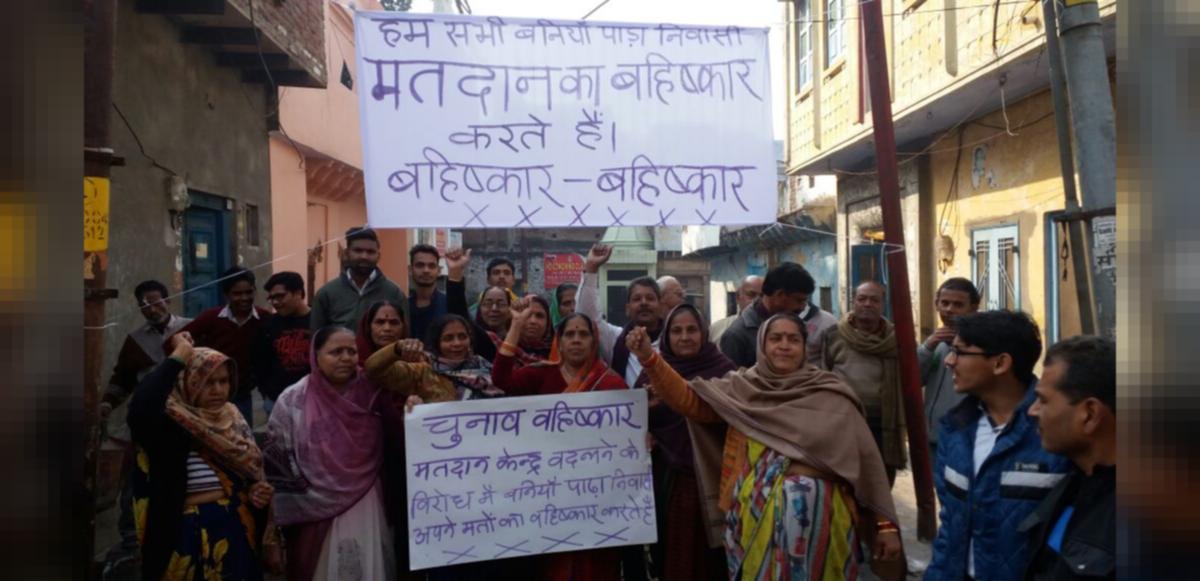 हम सभी बनिया पाड़ा निवासी
मतदान का बहिष्कार
करते हैं।
बहिष्कार – बहिष्कार
x x x x x x
चुनाव वहिष्कार
मतदान केन्द्र बदलने के
विरोध में बनियाँ पाढ़ा निवासी
अपने मतों का वहिष्कार करते हैं
x x x x